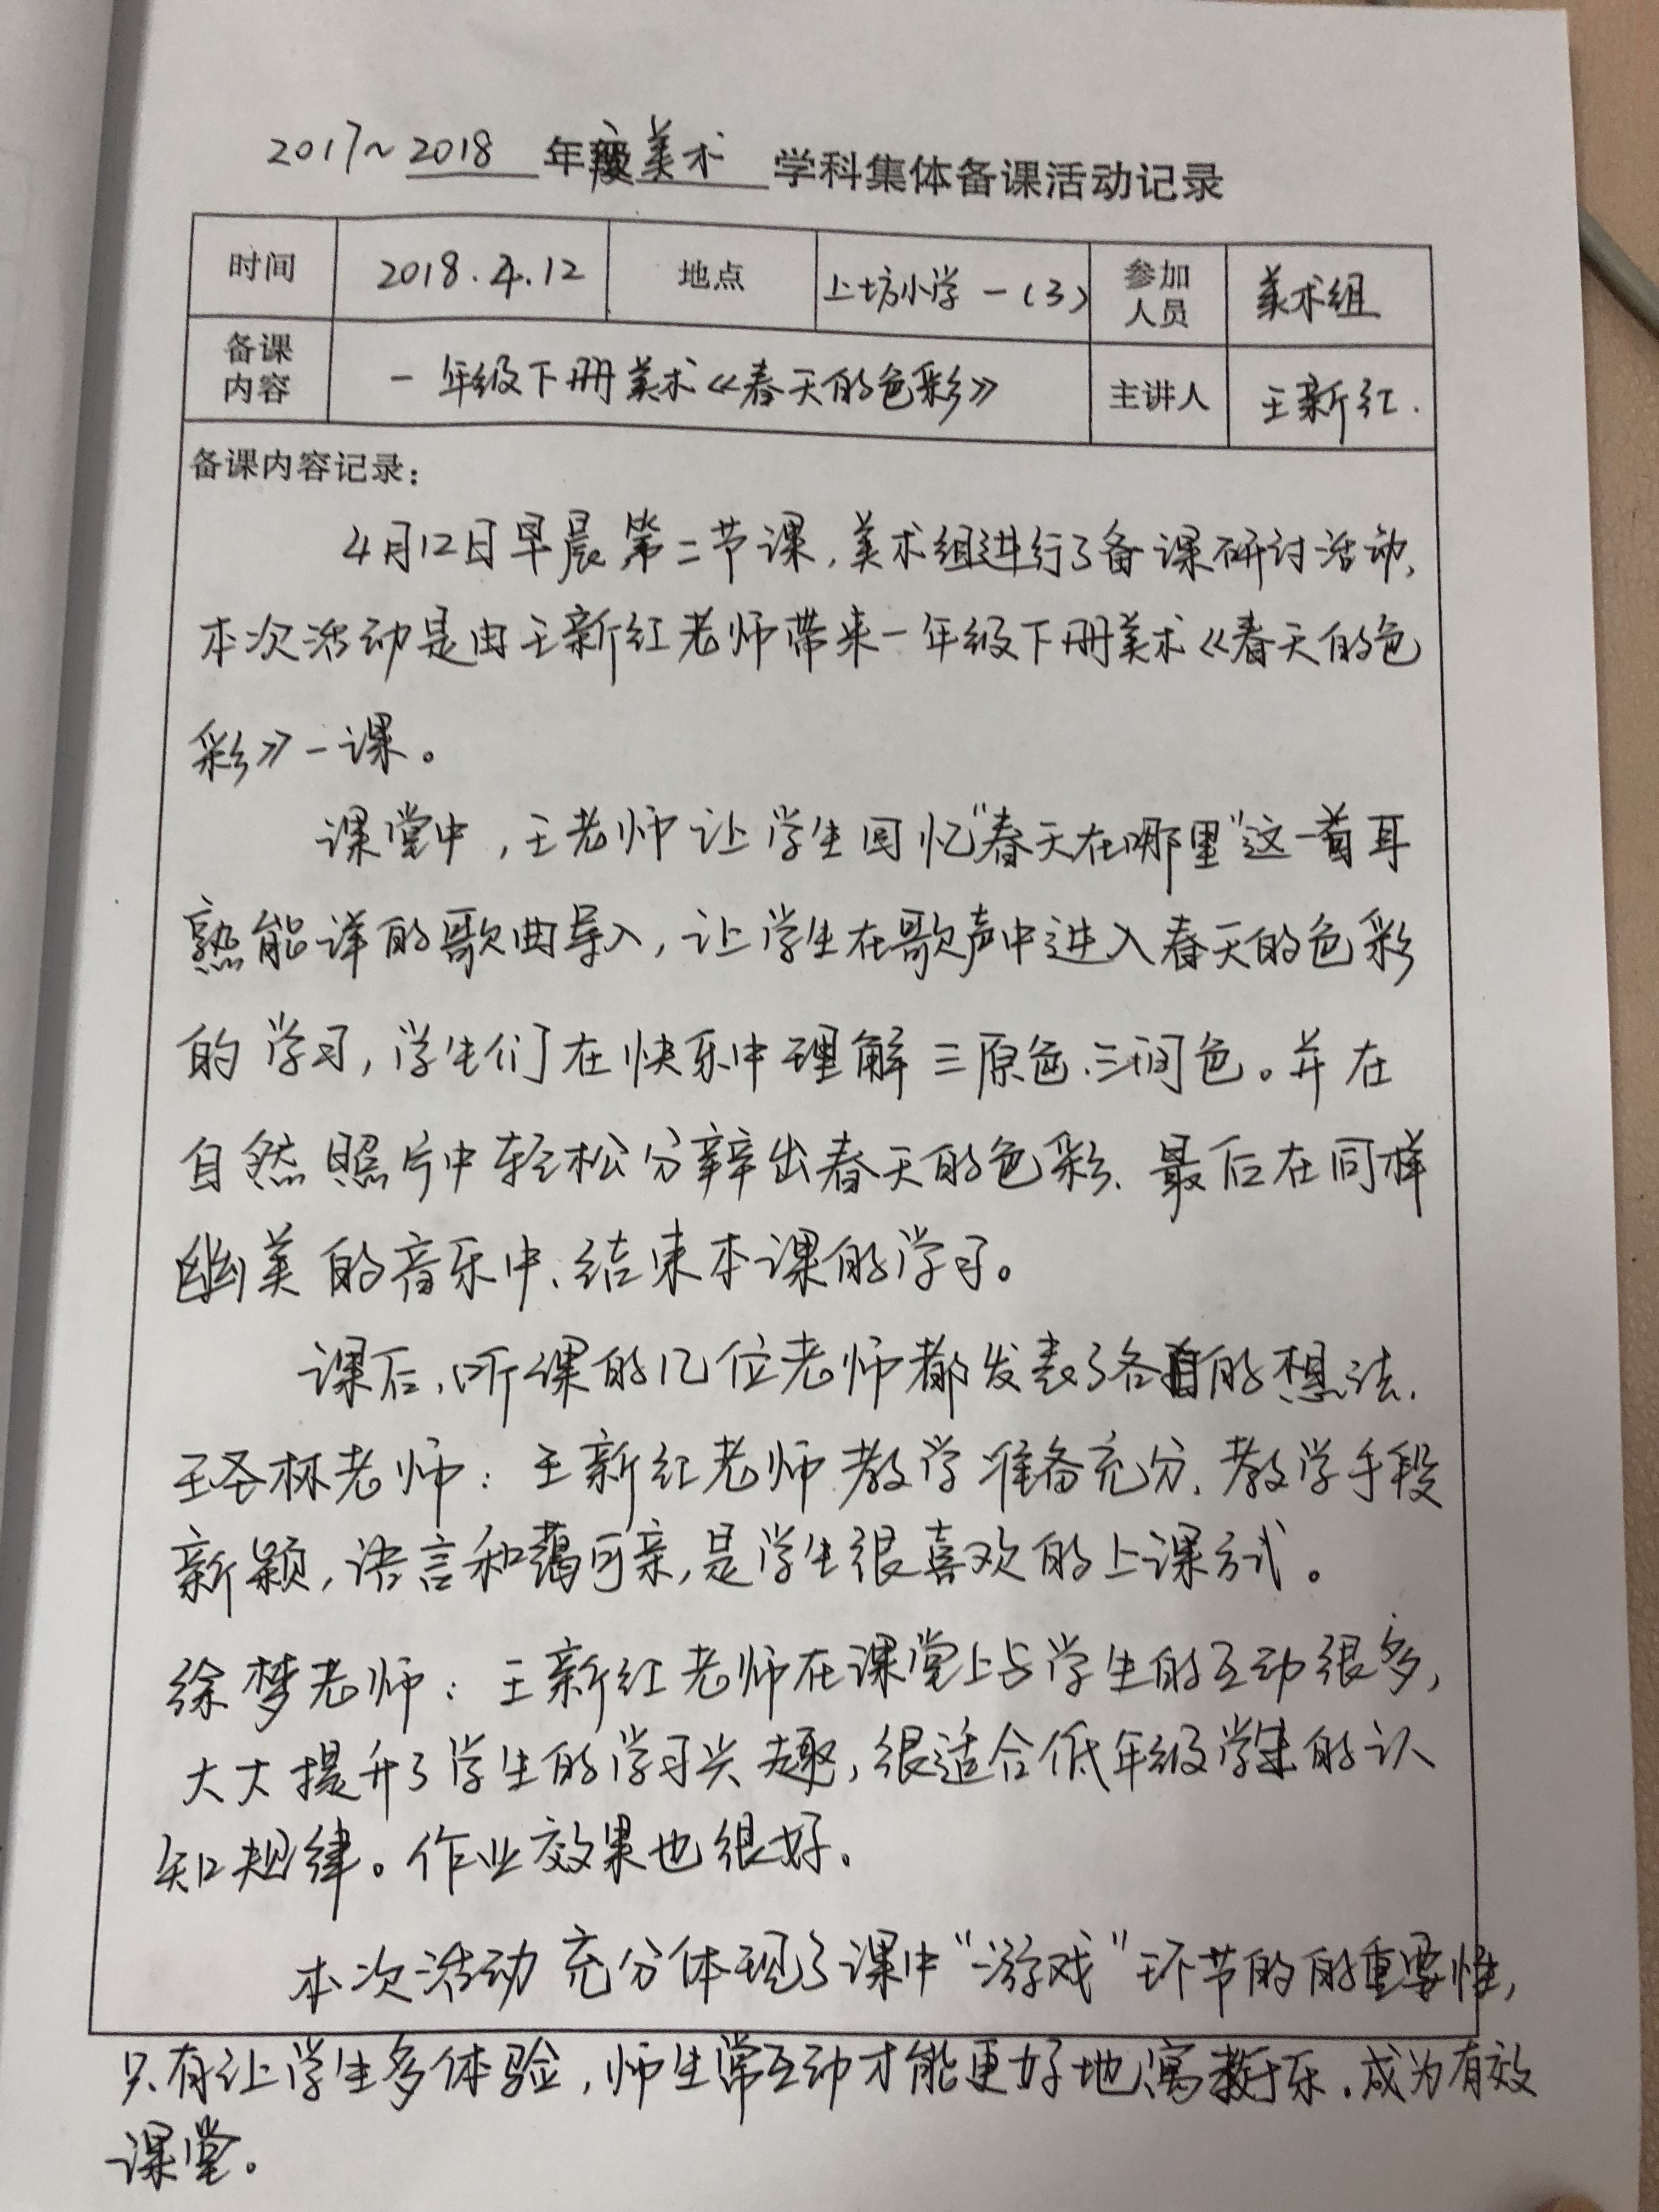 2017~2018 年度美术 学科集体备课活动记录
时间 2018.4.12 地点 上坊小学一(3) 参加人员 美术组
备课内容 一年级下册美术《春天的色彩》 主讲人 王新红.
备课内容记录：
4月12日早晨第二节课,美术组进行了备课研讨活动,
本次活动是由王新红老师带来一年级下册美术《春天的色
彩》一课。
课堂中,王老师让学生回忆"春天在哪里"这一首耳
熟能详的歌曲导入,让学生在歌声中进入春天的色彩
的学习,学生们在快乐中理解三原色、三间色。并在
自然照片中轻松分辨出春天的色彩、最后在同样
幽美的音乐中、结束本课的学习。
课后,听课的几位老师都发表了各自的想法.
王圣林老师：王新红老师教学准备充分、教学手段
新颖,语言和蔼可亲,是学生很喜欢的上课方式。
徐梦老师：王新红老师在课堂上与学生的互动很多,
大大提升了学生的学习兴趣,很适合低年级学生的认
知规律。作业效果也很好。
本次活动充分体现了课中"游戏"环节的的重要性,
只有让学生多体验,师生常互动才能更好地寓教于乐.成为有效
课堂。